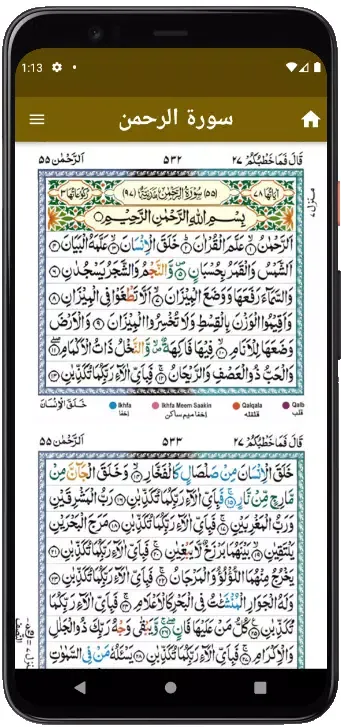 1:13
سورة الرحمن
قَالَ فَمَا خَطْبُكُمْ ٢٧ ٥٣٢ اَلرَّحْمٰنُ ٥٥
اٰیَاتُهَا ٧٨ (٥٥) سُوْرَةُ الرَّحْمٰنِ مَدَنِیَّةٌ (٩٧) رُكُوْعَاتُهَا ٣
بِسْمِ اللّٰهِ الرَّحْمٰنِ الرَّحِیْمِ
اَلرَّحْمٰنُ ۙ﴿١﴾ عَلَّمَ الْقُرْاٰنَ ؕ﴿٢﴾ خَلَقَ الْاِنْسَانَ ۙ﴿٣﴾ عَلَّمَهُ الْبَیَانَ ﴿٤﴾
اَلشَّمْسُ وَالْقَمَرُ بِحُسْبَانٍ ۪﴿٥﴾ وَّالنَّجْمُ وَالشَّجَرُ یَسْجُدٰنِ ﴿٦﴾
وَالسَّمَآءَ رَفَعَهَا وَوَضَعَ الْمِیْزَانَ ۙ﴿٧﴾ اَلَّا تَطْغَوْا فِی الْمِیْزَانِ ﴿٨﴾
وَاَقِیْمُوا الْوَزْنَ بِالْقِسْطِ وَلَا تُخْسِرُوا الْمِیْزَانَ ﴿٩﴾ وَالْاَرْضَ
وَضَعَهَا لِلْاَنَامِ ۙ﴿١٠﴾ فِیْهَا فَاكِهَةٌ ۪ۙ وَّالنَّخْلُ ذَاتُ الْاَكْمَامِ ﴿١١﴾
وَالْحَبُّ ذُو الْعَصْفِ وَالرَّیْحَانُ ۚ﴿١٢﴾ فَبِاَیِّ اٰلَآءِ رَبِّكُمَا تُكَذِّبٰنِ ﴿١٣﴾
خَلَقَ الْاِنْسَانَ
Ikhfa Ikhfa Meem Saakin Qalqala Qalb
اخفا اخفا میم ساکن قلقله قلب
قَالَ فَمَا خَطْبُكُمْ ٢٧ ٥٣٣ اَلرَّحْمٰنُ ٥٥
خَلَقَ الْاِنْسَانَ مِنْ صَلْصَالٍ كَالْفَخَّارِ ۙ﴿١٤﴾ وَخَلَقَ الْجَآنَّ مِنْ
مَّارِجٍ مِّنْ نَّارٍ ۚ﴿١٥﴾ فَبِاَیِّ اٰلَآءِ رَبِّكُمَا تُكَذِّبٰنِ ﴿١٦﴾ رَبُّ الْمَشْرِقَیْنِ
وَرَبُّ الْمَغْرِبَیْنِ ۚ﴿١٧﴾ فَبِاَیِّ اٰلَآءِ رَبِّكُمَا تُكَذِّبٰنِ ﴿١٨﴾ مَرَجَ الْبَحْرَیْنِ
یَلْتَقِیٰنِ ۙ﴿١٩﴾ بَیْنَهُمَا بَرْزَخٌ لَّا یَبْغِیٰنِ ۚ﴿٢٠﴾ فَبِاَیِّ اٰلَآءِ رَبِّكُمَا تُكَذِّبٰنِ ﴿٢١﴾
یَخْرُجُ مِنْهُمَا اللُّؤْلُؤُ وَالْمَرْجَانُ ۚ﴿٢٢﴾ فَبِاَیِّ اٰلَآءِ رَبِّكُمَا تُكَذِّبٰنِ ﴿٢٣﴾
وَلَهُ الْجَوَارِ الْمُنْشَئٰتُ فِی الْبَحْرِ كَالْاَعْلَامِ ۚ﴿٢٤﴾ فَبِاَیِّ اٰلَآءِ رَبِّكُمَا
تُكَذِّبٰنِ ﴿٢٥﴾ كُلُّ مَنْ عَلَیْهَا فَانٍ ۚۖ﴿٢٦﴾ وَّیَبْقٰی وَجْهُ رَبِّكَ ذُو الْجَلٰلِ
وَالْاِكْرَامِ ۚ﴿٢٧﴾ فَبِاَیِّ اٰلَآءِ رَبِّكُمَا تُكَذِّبٰنِ ﴿٢٨﴾ یَسْئَلُهٗ مَنْ فِی السَّمٰوٰتِ